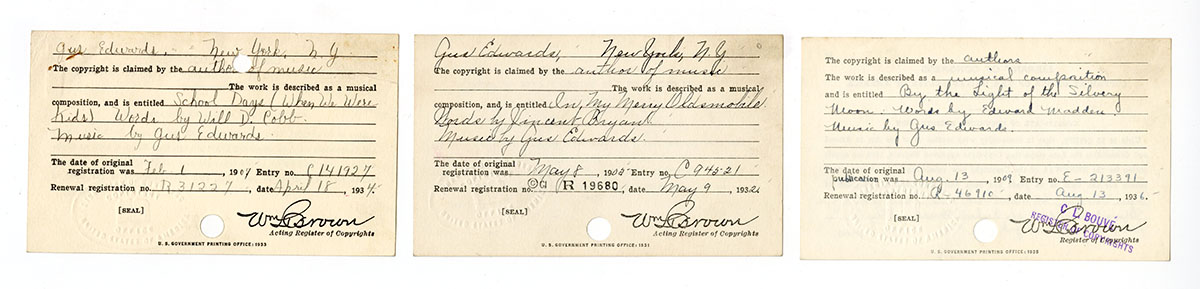 Gus Edwards, New York, N Y
The copyright is claimed by the author of music
The work is described as a musical
composition, and is entitled School Days (When We Were
Kids) Words by Will D. Cobb.
Music by Gus Edwards.
The date of original
registration was Feb 1, 1907 Entry no. C 141927
Renewal registration no. R 31227, date April 18, 1934.
[SEAL]
Wm L Brown
Acting Register of Copyrights
U. S. GOVERNMENT PRINTING OFFICE: 1933
Gus Edwards, New York, N Y
The copyright is claimed by the author of music
The work is described as a musical
composition, and is entitled In My Merry Oldsmobile.
Words by Vincent Bryant
Music by Gus Edwards.
The date of original
registration was May 8, 1905 Entry no. C 94521
Renewal registration no. ©CI R 19680, date May 9, 1932
[SEAL]
Wm L Brown
Acting Register of Copyrights
U. S. GOVERNMENT PRINTING OFFICE: 1931
The copyright is claimed by the authors
The work is described as a musical composition
and is entitled By the Light of the Silvery
Moon. Words by Edward Madden.
Music by Gus Edwards.
The date of original
publication was Aug. 13, 1909 Entry no. E-213391
Renewal registration no. R-46910, date Aug 13, 1936.
[SEAL]
C. L. BOUVÉ
REGISTER OF COPYRIGHTS
Wm L Brown
Register of Copyrights
U. S. GOVERNMENT PRINTING OFFICE: 1935